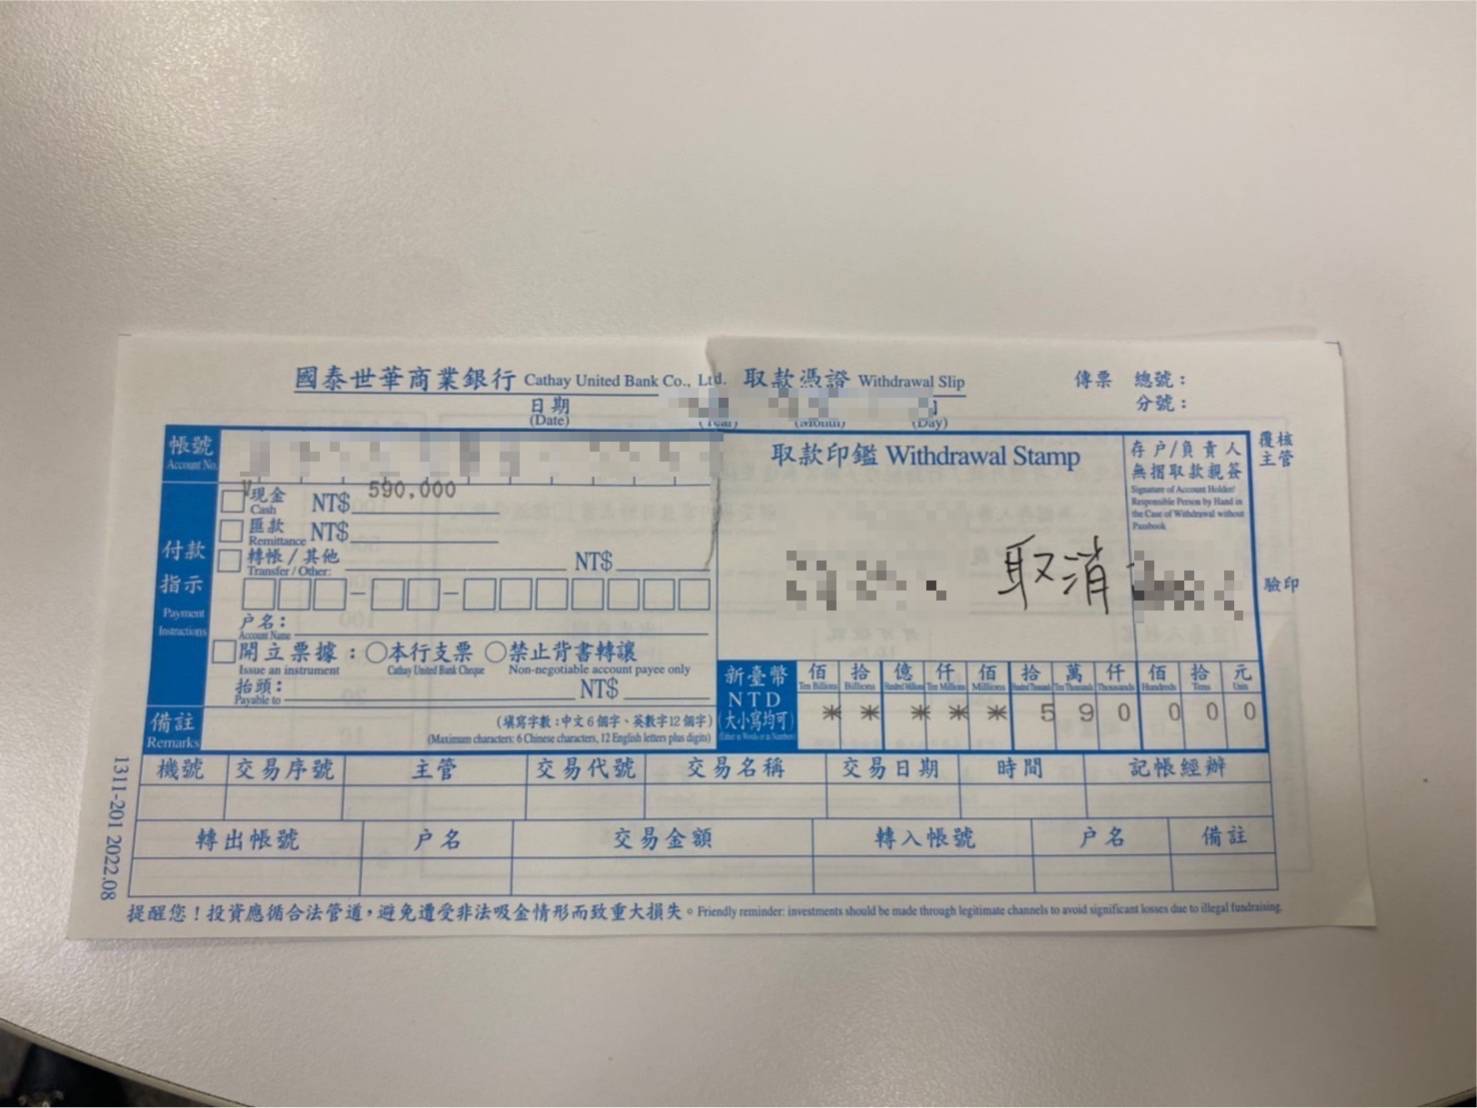 國泰世華商業銀行 Cathay United Bank Co., Ltd. 取款憑證 Withdrawal Slip
傳票 總號：
分號：
日期
(Date) (Year) (Month) (Day)
帳號
Account No.
取款印鑑 Withdrawal Stamp
存戶/負責人
無摺取款親簽
Signature of Account Holder/
Responsible Person by Hand in
the Case of Withdrawal without
Passbook
覆核
主管
驗印
付款
指示
Payment
Instructions
V 現金 NT$ 590,000
Cash
匯款 NT$
Remittance
轉帳/其他 NT$
Transfer / Other:
戶名：
Account Name
開立票據：本行支票 禁止背書轉讓
Issue an instrument Cathay United Bank Cheque Non-negotiable account payee only
抬頭： NT$
Payable to
取消
新臺幣
NTD
(大小寫均可)
佰 拾 億 仟 佰 拾 萬 仟 佰 拾 元
Ten Billions Billions Hundred Millions Ten Millions Millions Hundred Thousands Ten Thousands Thousands Hundreds Tens Units
* * * * * 5 9 0 0 0 0
備註
Remarks
(填寫字數：中文6個字、英數字12個字)
(Maximum characters: 6 Chinese characters, 12 English letters plus digits)
機號 交易序號 主管 交易代號 交易名稱 交易日期 時間 記帳經辦
轉出帳號 戶名 交易金額 轉入帳號 戶名 備註
提醒您！投資應循合法管道，避免遭受非法吸金情形而致重大損失。Friendly reminder: investments should be made through legitimate channels to avoid significant losses due to illegal fundraising.
1311-201 2022.08